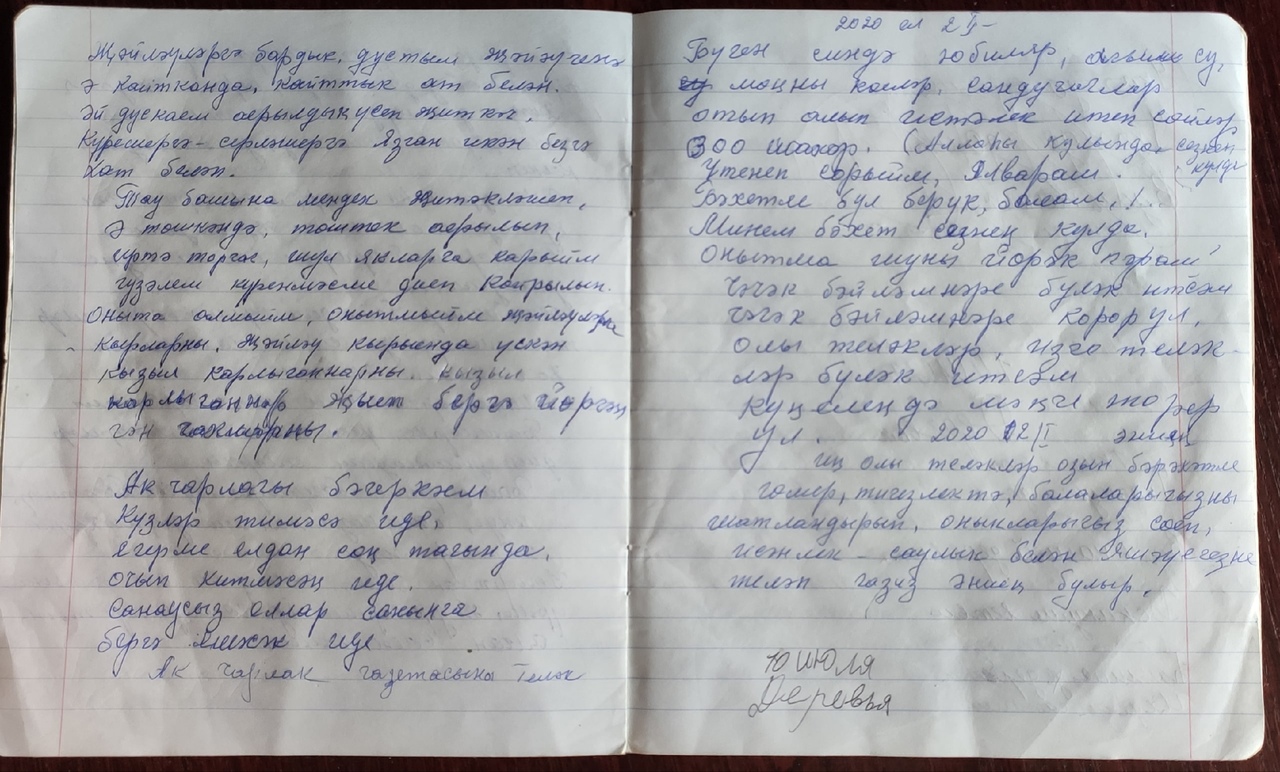 Җәйләүләргә бардык, дустым җәйәүгенә
ә кайтканда, кайттык ат белән.
Әй дускаем аерылдык үсеп җиткәч,
Күрешергә - серләшергә Язган икән безгә
хат белән.
Тау башына мендек җитәкләшеп,
Ә төшкәндә, төштек аерылып,
иртә торгач, шул якларга карыйм
гүзәлем күренмәсме диеп каерылып.
Оныта алмыйм, онытмыйм җәйләүләрне
кырларны. Җәйләү кырында үскән
кызыл карлыганнарны. Кызыл
карлыганнар җыеп бергә йөргән
гән чакларны.
Ак чарлагы бәгеркәем
Күзләр тимәсә иде,
Егерме елдан соң тагында,
очып китмәсәң иде.
Санаусыз еллар саенга
бергә яшисәк иде
Ак чарлак газетасына теләк
2020 ел 2 II
Бүген синдә юбиляр, су,
моңны көйләр, сандугачлар
отып алып истәлек итеп сөйләр
300 йолдыз. (Аллаһы кулында сезнең
кулда
Үтенеп сорыйм, Ялварам.
Бәхетле бул берүк, балам, !..
Минем бәхет сезнең кулда.
Онытма шуны йөрәк пәрәм!
Чәчәк бәйләмнәре бүләк итсәм
чәчәк бәйләмнәре корор ул,
олы теләкләр, изге теләк-
ләр бүләк итсәм
күңелеңдә мәңге йөрер
ул. 2020 12/I әниең
иң олы теләкләр озын бәрәкәтле
гомер, тигезлектә, балаларыгызны
шатландырып, оныкларыгыз сөеп,
исәнлек - саулык белән Яшәүегезне
теләп газиз әниең булыр.
10 июля
Деревья